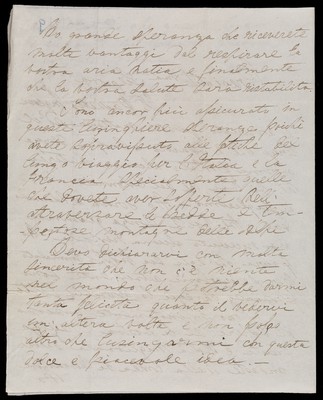 Ho grande speranza che riceverete
molte vantaggi dal respirare la
vostra aria natea, e finalmente
che la vostra salute sarà ristabilita.
Sono ancor più assicurato in
queste lusinghiere speranze, poichè
avete sopravissuto alle fatiche del
lungo viaggio per l'Italia e la
Francia, specialmente quelle
che dovete aver sofferte nell'
attraversare le fredde e tem-
pestose montagne delle Alpi
Devo dichiararvi con molta
sincerità che non c'è niente
nel mondo che potrebbe darmi
tanta felicità quanto il vedervi
un altera volta, e non posso
altro che lusingarmi con questa
dolce e piacevole idea. —